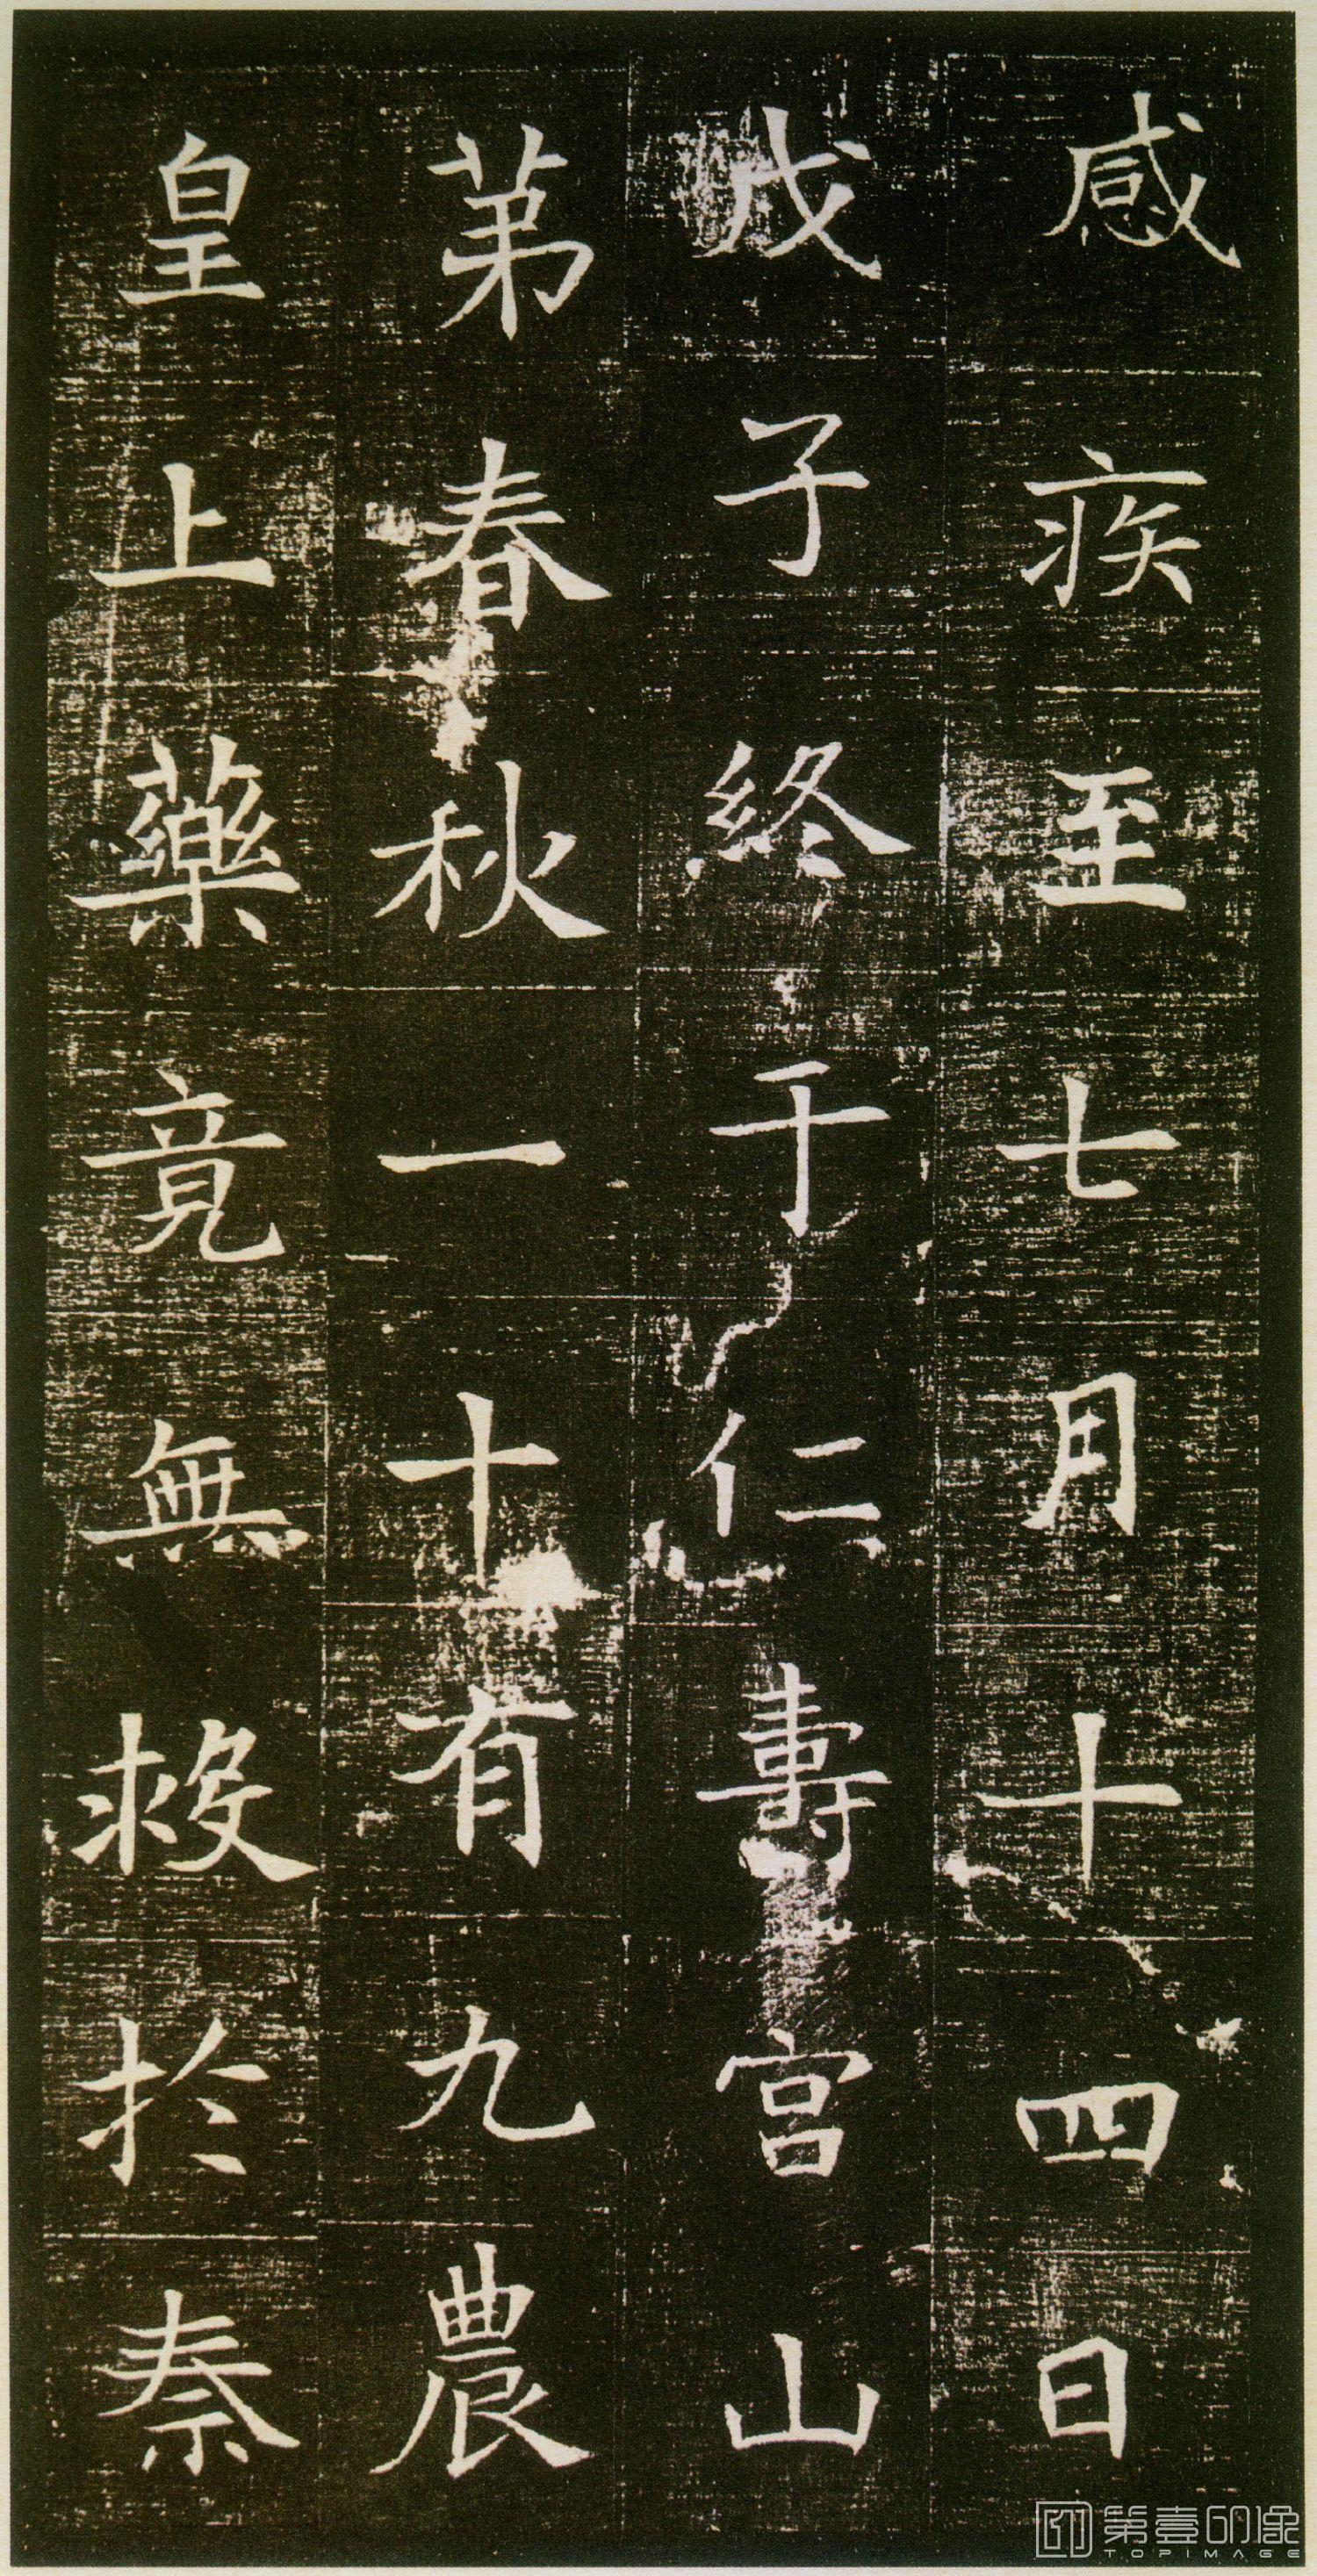 感疾至七月十四日
戊子終于仁壽宮山
苐春秋一十有九農
皇上藥竟無救於秦
第壹印像
TOPIMAGE